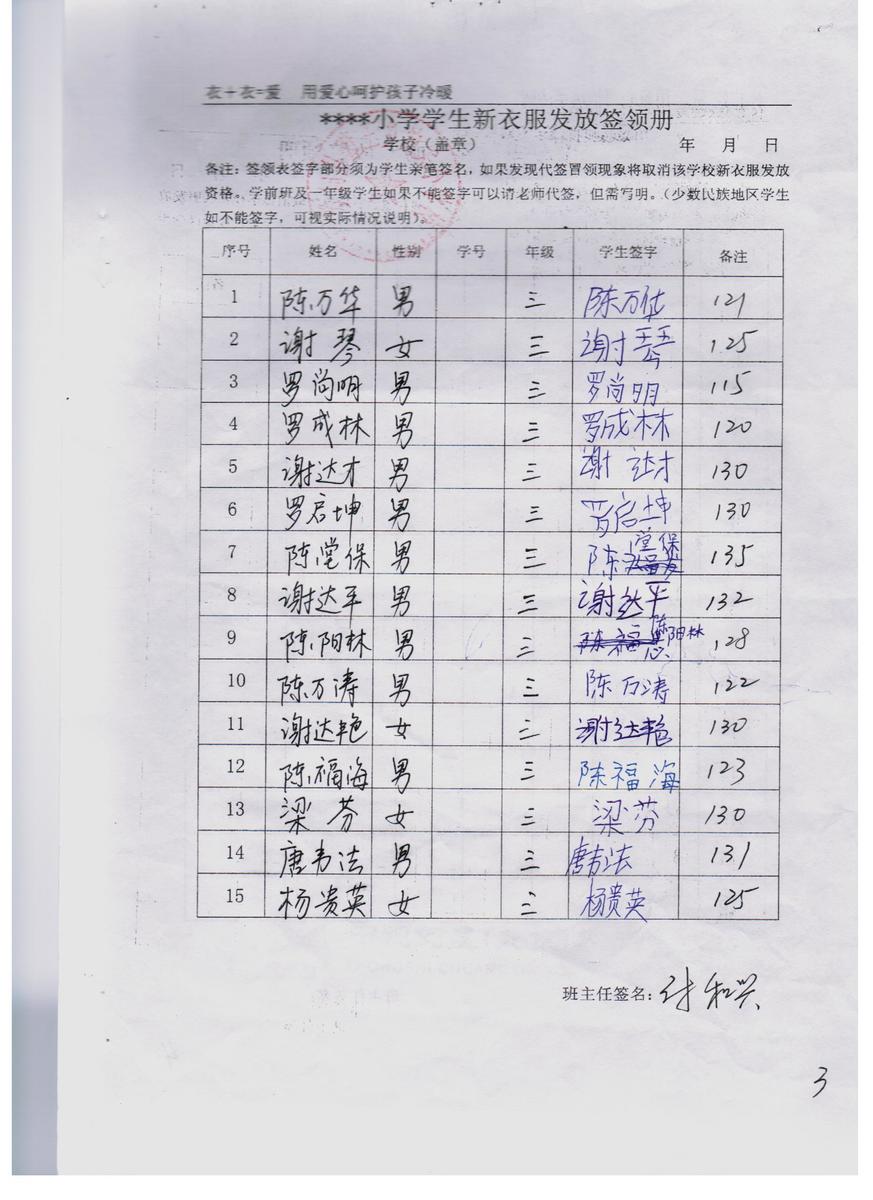 衣+衣=爱 用爱心呵护孩子冷暖
****小学学生新衣服发放签领册
学校（盖章） 年 月 日
备注：签领表签字部分须为学生亲笔签名，如果发现代签冒领现象将取消该学校新衣服发放
资格。学前班及一年级学生如果不能签字可以请老师代签，但需写明。（少数民族地区学生
如不能签字，可视实际情况说明）。
序号 姓名 性别 学号 年级 学生签字 备注
1 陈万华 男 三 陈万华 121
2 谢琴 女 三 谢琴 125
3 罗尚明 男 三 罗尚明 115
4 罗成林 男 三 罗成林 120
5 谢达才 男 三 谢达才 130
6 罗启坤 男 三 罗启坤 130
7 陈堂保 男 三 陈堂保 135
8 谢达平 男 三 谢达平 132
9 陈阳林 男 三 陈阳林 128
10 陈万涛 男 三 陈万涛 122
11 谢达艳 女 三 谢达艳 130
12 陈福海 男 三 陈福海 123
13 梁芬 女 三 梁芬 130
14 唐韦法 男 三 唐韦法 131
15 杨贵英 女 三 杨贵英 125
班主任签名：
3